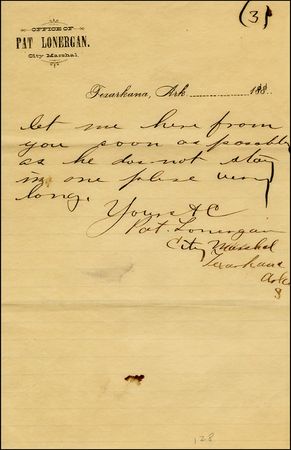 (3)
OFFICE OF
PAT LONERGAN.
City Marshal.
Texarkana, Ark. 188
let me here from
you soon as possible
as he does not stay
in one plase very
long.
Yours &C
Pat. Lonergan
City Marshal
Texarkana
Ark
128